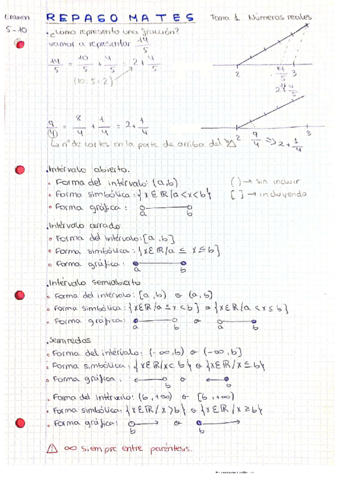 Examen
5-10
REPASO MATES
Tema 1. Números reales
¿Cómo represento una fracción?
vamos a representar 14/5
14/5 = 10/5 + 4/5 = 2 + 4/5
(10:5=2)
2 14/5 3
2 4/5
9/4 = 8/4 + 1/4 = 2 + 1/4
2 9/4 3
→ 2 + 1/4
↳ nº de cortes en la parte de arriba del
.Intervalo abierto.
• Forma del intervalo: (a,b)
( ) → sin incluir
• Forma simbólica: {x∈ℝ/a<x<b}
[ ] → incluyendo
• Forma gráfica:
a b
.Intervalo cerrado.
• Forma del intervalo: [a,b]
• Forma simbólica: {x∈ℝ/a ≤ x ≤ b}
• Forma gráfica:
a b
.Intervalo semiabierto
• Forma del intervalo: [a,b) o (a,b]
• Forma simbólica: {x∈ℝ/a ≤ x < b} o {x∈ℝ/a < x ≤ b}
• Forma gráfica:
a b o a b
.Semirrectas
• Forma del intervalo: (-∞,b) o (-∞,b]
• Forma simbólica: {x∈ℝ/x< b} o {x∈ℝ/x ≤ b}
• Forma gráfica:
b o b
• Forma del intervalo: (b,+∞) o [b,+∞)
• Forma simbólica: {x∈ℝ/x >b} o {x∈ℝ/x ≥ b}
• Forma gráfica:
b o b
⚠ ∞ siempre entre paréntesis.